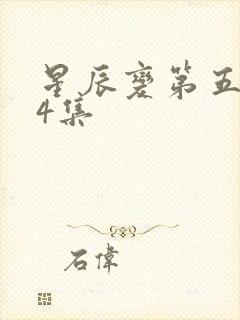 星辰变第五
4集
石偉